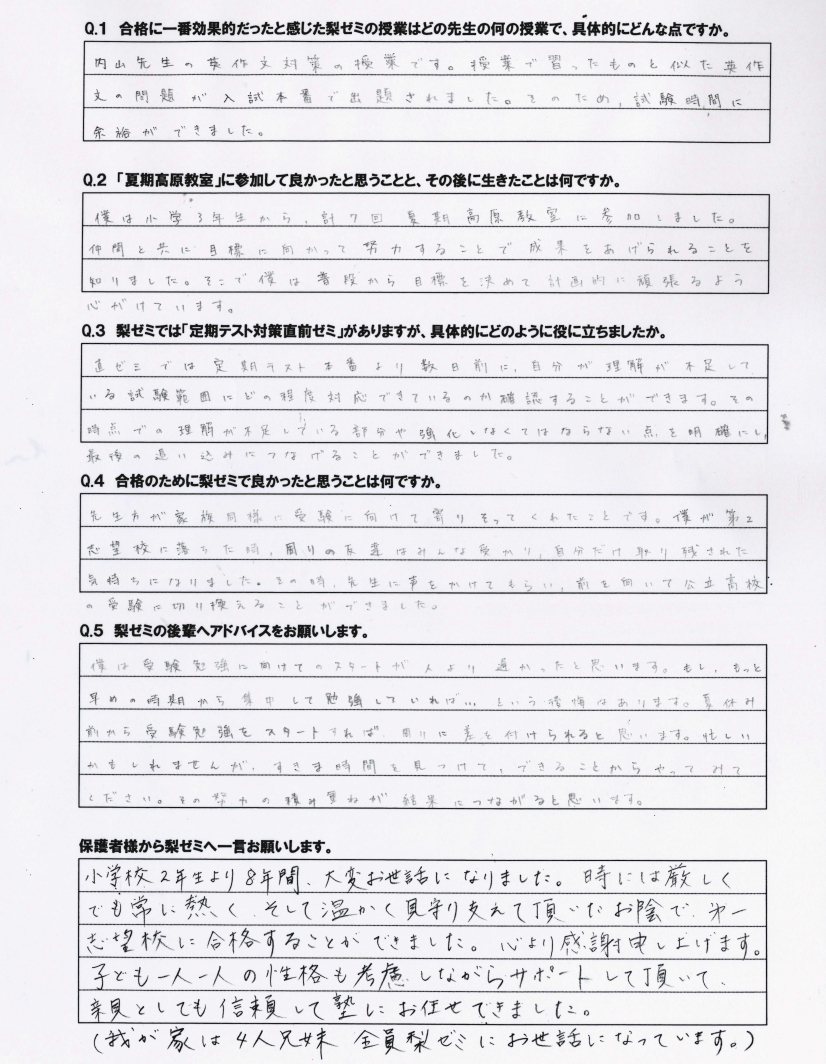 Q.1 合格に一番効果的だったと感じた梨ゼミの授業はどの先生の何の授業で、具体的にどんな点ですか。
内山先生の英作文対策の授業です。授業で習ったものと似た英作
文の問題が入試本番で出題されました。そのため、試験時間に
余裕ができました。
Q.2 「夏期高原教室」に参加して良かったと思うことと、その後に生きたことは何ですか。
僕は小学3年生から、計7回 夏期高原教室に参加しました。
仲間と共に目標に向かって努力することで成果をあげられることを
知りました。そこで僕は普段から目標を決めて計画的に頑張るよう
心がけています。
Q.3 梨ゼミでは「定期テスト対策直前ゼミ」がありますが、具体的にどのように役に立ちましたか。
直ゼミでは定期テスト本番より数日前に、自分が理解が不足して
いる試験範囲にどの程度対応できているのか確認することができます。その
時点での理解が不足している部分や強化しなくてはならない点を明確にし、
最後の追い込みにつなげることができました。
Q.4 合格のために梨ゼミで良かったと思うことは何ですか。
先生方が家族同様に受験に向けて寄りそってくれたことです。僕が第2
志望校に落ちた時、周りの友達はみんな受かり、自分だけ取り残された
気持ちになりました。その時、先生に声をかけてもらい、前を向いて公立高校
の受験に切り換えることができました。
Q.5 梨ゼミの後輩へアドバイスをお願いします。
僕は受験勉強に向けてのスタートが人より遅かったと思います。もし、もっと
早めの時期から集中して勉強していれば…という後悔はあります。夏休み
前から受験勉強をスタートすれば、周りに差を付けられると思います。忙しい
かもしれませんが、すきま時間を見つけて、できることからやってみて
ください。その努力の積み重ねが、結果につながると思います。
保護者様から梨ゼミへ一言お願いします。
小学校2年生より8年間、大変お世話になりました。時には厳しく
でも常に熱く、そして温かく見守り支えて頂いたお陰で、第一
志望校に合格することができました。心より感謝申し上げます。
子ども一人一人の性格も考慮しながらサポートして頂いて、
親としても信頼して塾にお任せできました。
(我が家は4人兄妹 全員梨ゼミにお世話になっています。)